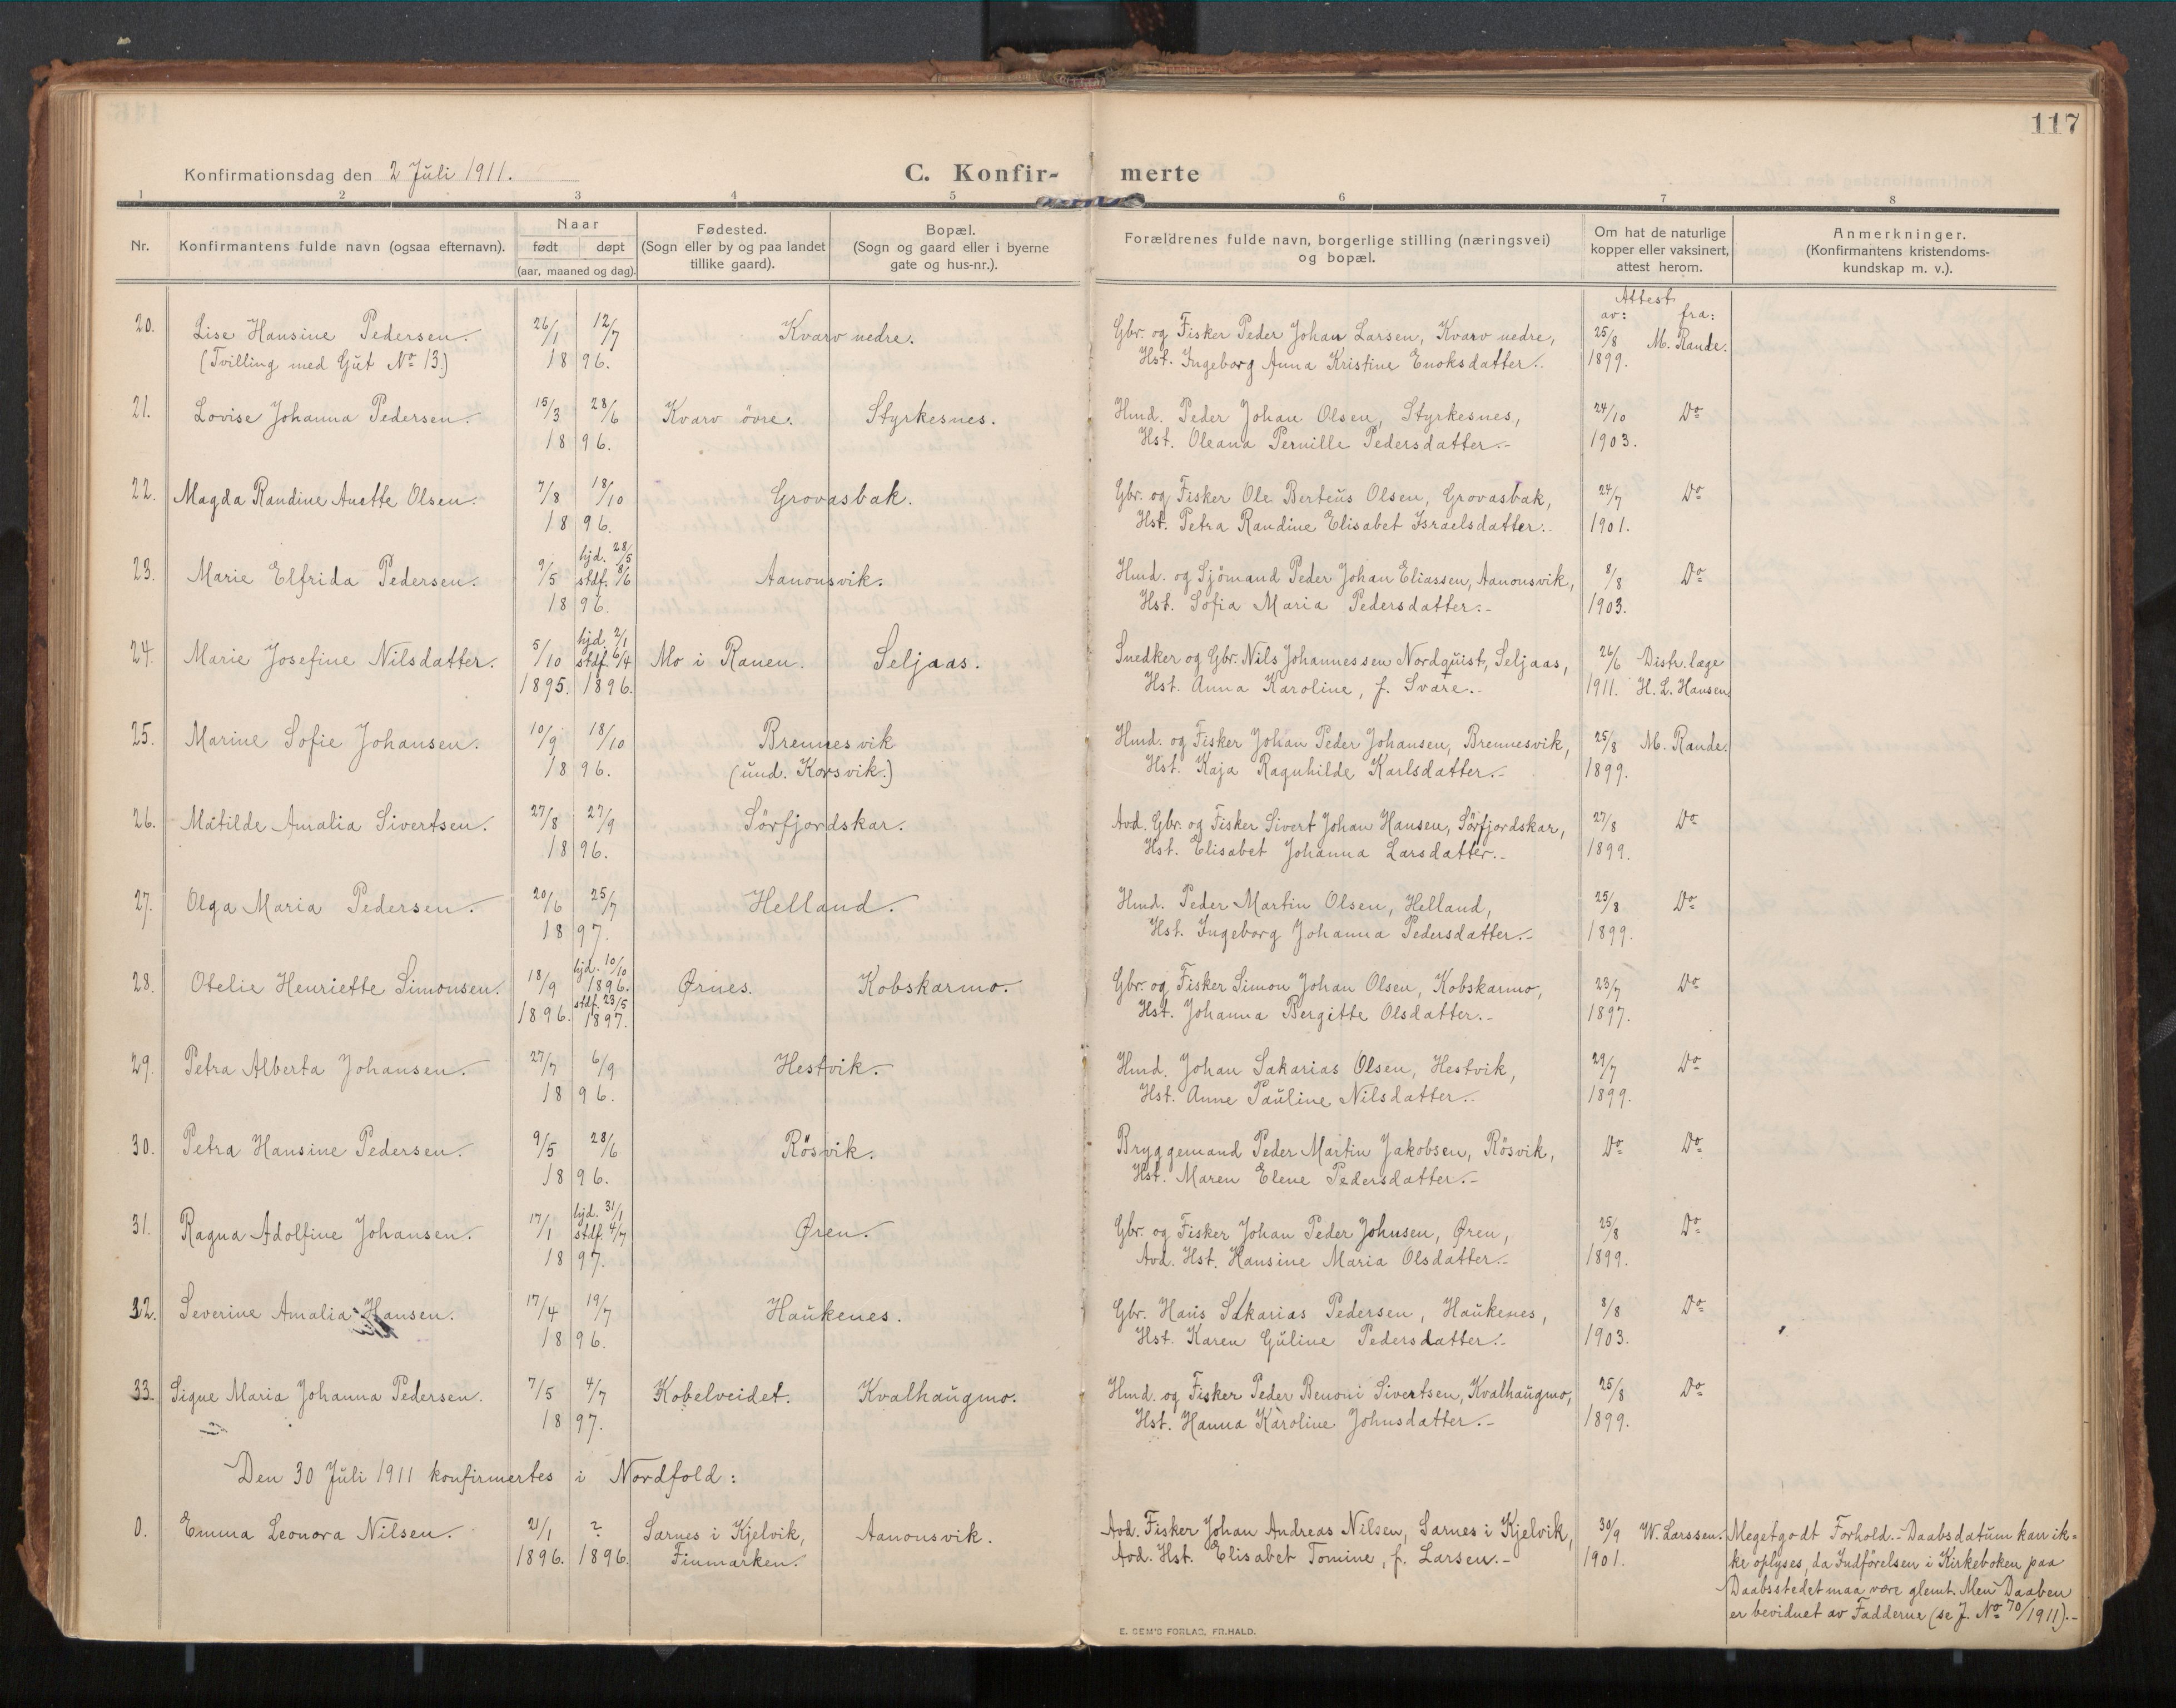 117
Konfirmationsdag den 2 Juli 1911.
C. Konfir- merte
1 2 3 4 5 6 7 8
Nr. Konfirmantens fulde navn (ogsaa efternavn). Naar født døpt (aar, maaned og dag). Fødested. (Sogn eller by og paa landet tillike gaard). Bopæl. (Sogn og gaard eller i byerne gate og hus-nr.). Forældrenes fulde navn, borgerlige stilling (næringsvei) og bopæl. Om hat de naturlige kopper eller vaksinert, attest herom. Anmerkninger. (Konfirmantens kristendoms-kundskap m. v.).
Attest
av: fra:
20. Lise Hansine Pedersen. 26/1 12/7 Kvarv nedre. Gbr. og Fisker Peder Johan Larsen, Kvarv nedre, 25/8 M. Rande.
(Tvilling med Gut No 13.) 1896. Hst. Ingeborg Anna Kristine Enoksdatter. 1899.
21. Lovise Johanna Pedersen. 15/3 28/6 Kvarv övre. Styrkesnes. Hmd. Peder Johan Olsen, Styrkesnes, 24/10 Do
1896. Hst. Oleana Pernille Pedersdatter. 1903.
22. Magda Randine Anette Olsen. 7/8 18/10 Grovasbak. Gbr. og Fisker Ole Berteus Olsen, Grovasbak, 24/7 Do
1896. Hst. Petra Randine Elisabet Israelsdatter. 1901.
hjd. 28/5
23. Marie Elfrida Pedersen. 9/5 stdf. 8/6 Aanonsvik. Hmd. og Sjömand Peder Johan Eliassen, Aanonsvik, 8/8 Do
1896. Hst. Sofia Maria Pedersdatter. 1903.
hjd. 2/1
24. Marie Josefine Nilsdatter. 5/10 stdf. 6/4 Mo i Ranen. Seljaas. Snedker og Gbr. Nils Johannessen Nordquist, Seljaas, 26/6 Distr.læge
1895. 1896. Hst. Anna Karoline, f. Svare. 1911. H. L. Hansen.
25. Marine Sofie Johansen. 10/9 18/10 Brennesvik Hmd. og Fisker Johan Peder Johansen, Brennesvik, 25/8 M. Rande.
1896. (und. Korsvik.) Hst. Kaja Ragnhilde Karlsdatter. 1899.
26. Matilde Amalia Sivertsen. 27/8 27/9 Sörfjordskar. Avd. Gbr. og Fisker Sivert Johan Hansen, Sörfjordskar, 27/8 Do
1896. Hst. Elisabet Johanna Larsdatter. 1899.
27. Olga Maria Pedersen. 20/6 25/7 Helland. Hmd. Peder Martin Olsen, Helland, 25/8 Do
1897. Hst. Ingeborg Johanna Pedersdatter. 1899.
hjd. 10/10
28. Otelie Henriette Simonsen. 18/9 1896. Ørnes. Kobskarmo. Gbr. og Fisker Simon Johan Olsen, Kobskarmo, 23/7 Do
1896. stdf. 23/5 1897. Hst. Johanna Bergitte Olsdatter. 1897.
29. Petra Alberta Johansen. 27/7 6/9 Hestvik. Hmd. Johan Sakarias Olsen, Hestvik, 29/7 Do
1896. Hst. Anne Pauline Nilsdatter. 1899.
30. Petra Hansine Pedersen. 9/5 28/6 Rösvik. Bryggemand Peder Martin Jakobsen, Rösvik, Do Do
1896. Hst. Maren Elene Pedersdatter.
hjd. 31/1
31. Ragna Adolfine Johansen. 17/1 stdf. 4/7 Øren. Gbr. og Fisker Johan Peder Johnsen, Øren, 25/8 Do
1897. Avd. Hst. Hansine Maria Olsdatter. 1899.
32. Severine Amalia Hansen. 17/4 19/7 Haukenes. Gbr. Hans Sakarias Pedersen, Haukenes, 8/8 Do
1896. Hst. Karen Guline Pedersdatter. 1903.
33. Signe Maria Johanna Pedersen. 7/5 4/7 Kobelveidet. Kvalhaugmo. Hmd. og Fisker Peder Benoni Sivertsen, Kvalhaugmo, 25/8 Do
1897. Hst. Hanna Karoline Johnsdatter. 1899.
Den 30 Juli 1911 konfirmertes i Nordfold:
0. Emma Leonora Nilsen. 21/1 ? Sarnes i Kjelvik, Aanonsvik. Avd. Fisker Johan Andreas Nilsen, Sarnes i Kjelvik, 30/9 W. Larssen. Megetgodt Forhold. Daabsdatum kan ik=
1896. 1896. Finmarken. Avd. Hst. Elisabet Tomine, f. Larsen. 1901. ke oplyses, da Indförelsen i Kirkeboken paa
Daabsstedet maa være glemt. Men Daaben
er bevidnet av Fadderne (se J. No 70/1911).
E. SEM'S FORLAG, FR.HALD.